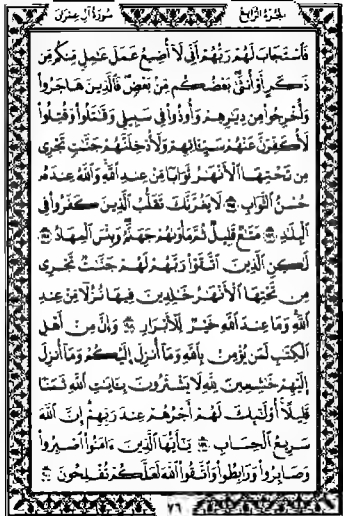 سورة آل عمران الجزء الرابع
فَٱسْتَجَابَ لَهُمْ رَبُّهُمْ أَنِّى لَآ أُضِيعُ عَمَلَ عَٰمِلٍ مِّنكُم مِّن
ذَكَرٍ أَوْ أُنثَىٰ بَعْضُكُم مِّنۢ بَعْضٍ فَٱلَّذِينَ هَاجَرُوا۟
وَأُخْرِجُوا۟ مِن دِيَٰرِهِمْ وَأُوذُوا۟ فِى سَبِيلِى وَقَٰتَلُوا۟ وَقُتِلُوا۟
لَأُكَفِّرَنَّ عَنْهُمْ سَيِّـَٔاتِهِمْ وَلَأُدْخِلَنَّهُمْ جَنَّٰتٍ تَجْرِى
مِن تَحْتِهَا ٱلْأَنْهَٰرُ ثَوَابًا مِّنْ عِندِ ٱللَّهِ وَٱللَّهُ عِندَهُۥ
حُسْنُ ٱلثَّوَابِ ١٩٥ لَا يَغُرَّنَّكَ تَقَلُّبُ ٱلَّذِينَ كَفَرُوا۟ فِى
ٱلْبِلَٰدِ ١٩٦ مَتَٰعٌ قَلِيلٌ ثُمَّ مَأْوَىٰهُمْ جَهَنَّمُ وَبِئْسَ ٱلْمِهَادُ ١٩٧
لَٰكِنِ ٱلَّذِينَ ٱتَّقَوْا۟ رَبَّهُمْ لَهُمْ جَنَّٰتٌ تَجْرِى
مِن تَحْتِهَا ٱلْأَنْهَٰرُ خَٰلِدِينَ فِيهَا نُزُلًا مِّنْ عِندِ
ٱللَّهِ وَمَا عِندَ ٱللَّهِ خَيْرٌ لِّلْأَبْرَارِ ١٩٨ وَإِنَّ مِنْ أَهْلِ
ٱلْكِتَٰبِ لَمَن يُؤْمِنُ بِٱللَّهِ وَمَآ أُنزِلَ إِلَيْكُمْ وَمَآ أُنزِلَ
إِلَيْهِمْ خَٰشِعِينَ لِلَّهِ لَا يَشْتَرُونَ بِـَٔايَٰتِ ٱللَّهِ ثَمَنًا
قَلِيلًا أُو۟لَٰٓئِكَ لَهُمْ أَجْرُهُمْ عِندَ رَبِّهِمْ إِنَّ ٱللَّهَ
سَرِيعُ ٱلْحِسَابِ ١٩٩ يَٰٓأَيُّهَا ٱلَّذِينَ ءَامَنُوا۟ ٱصْبِرُوا۟
وَصَابِرُوا۟ وَرَابِطُوا۟ وَٱتَّقُوا۟ ٱللَّهَ لَعَلَّكُمْ تُفْلِحُونَ ٢٠٠
٧٦